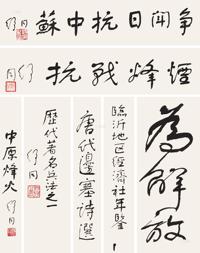 争闻日抗中苏
舒同
烟烽战抗
舒同
为解放
临沂地区经济社年鉴
唐代边塞诗选
历代著名兵法之一
舒同
中原烽火
舒同